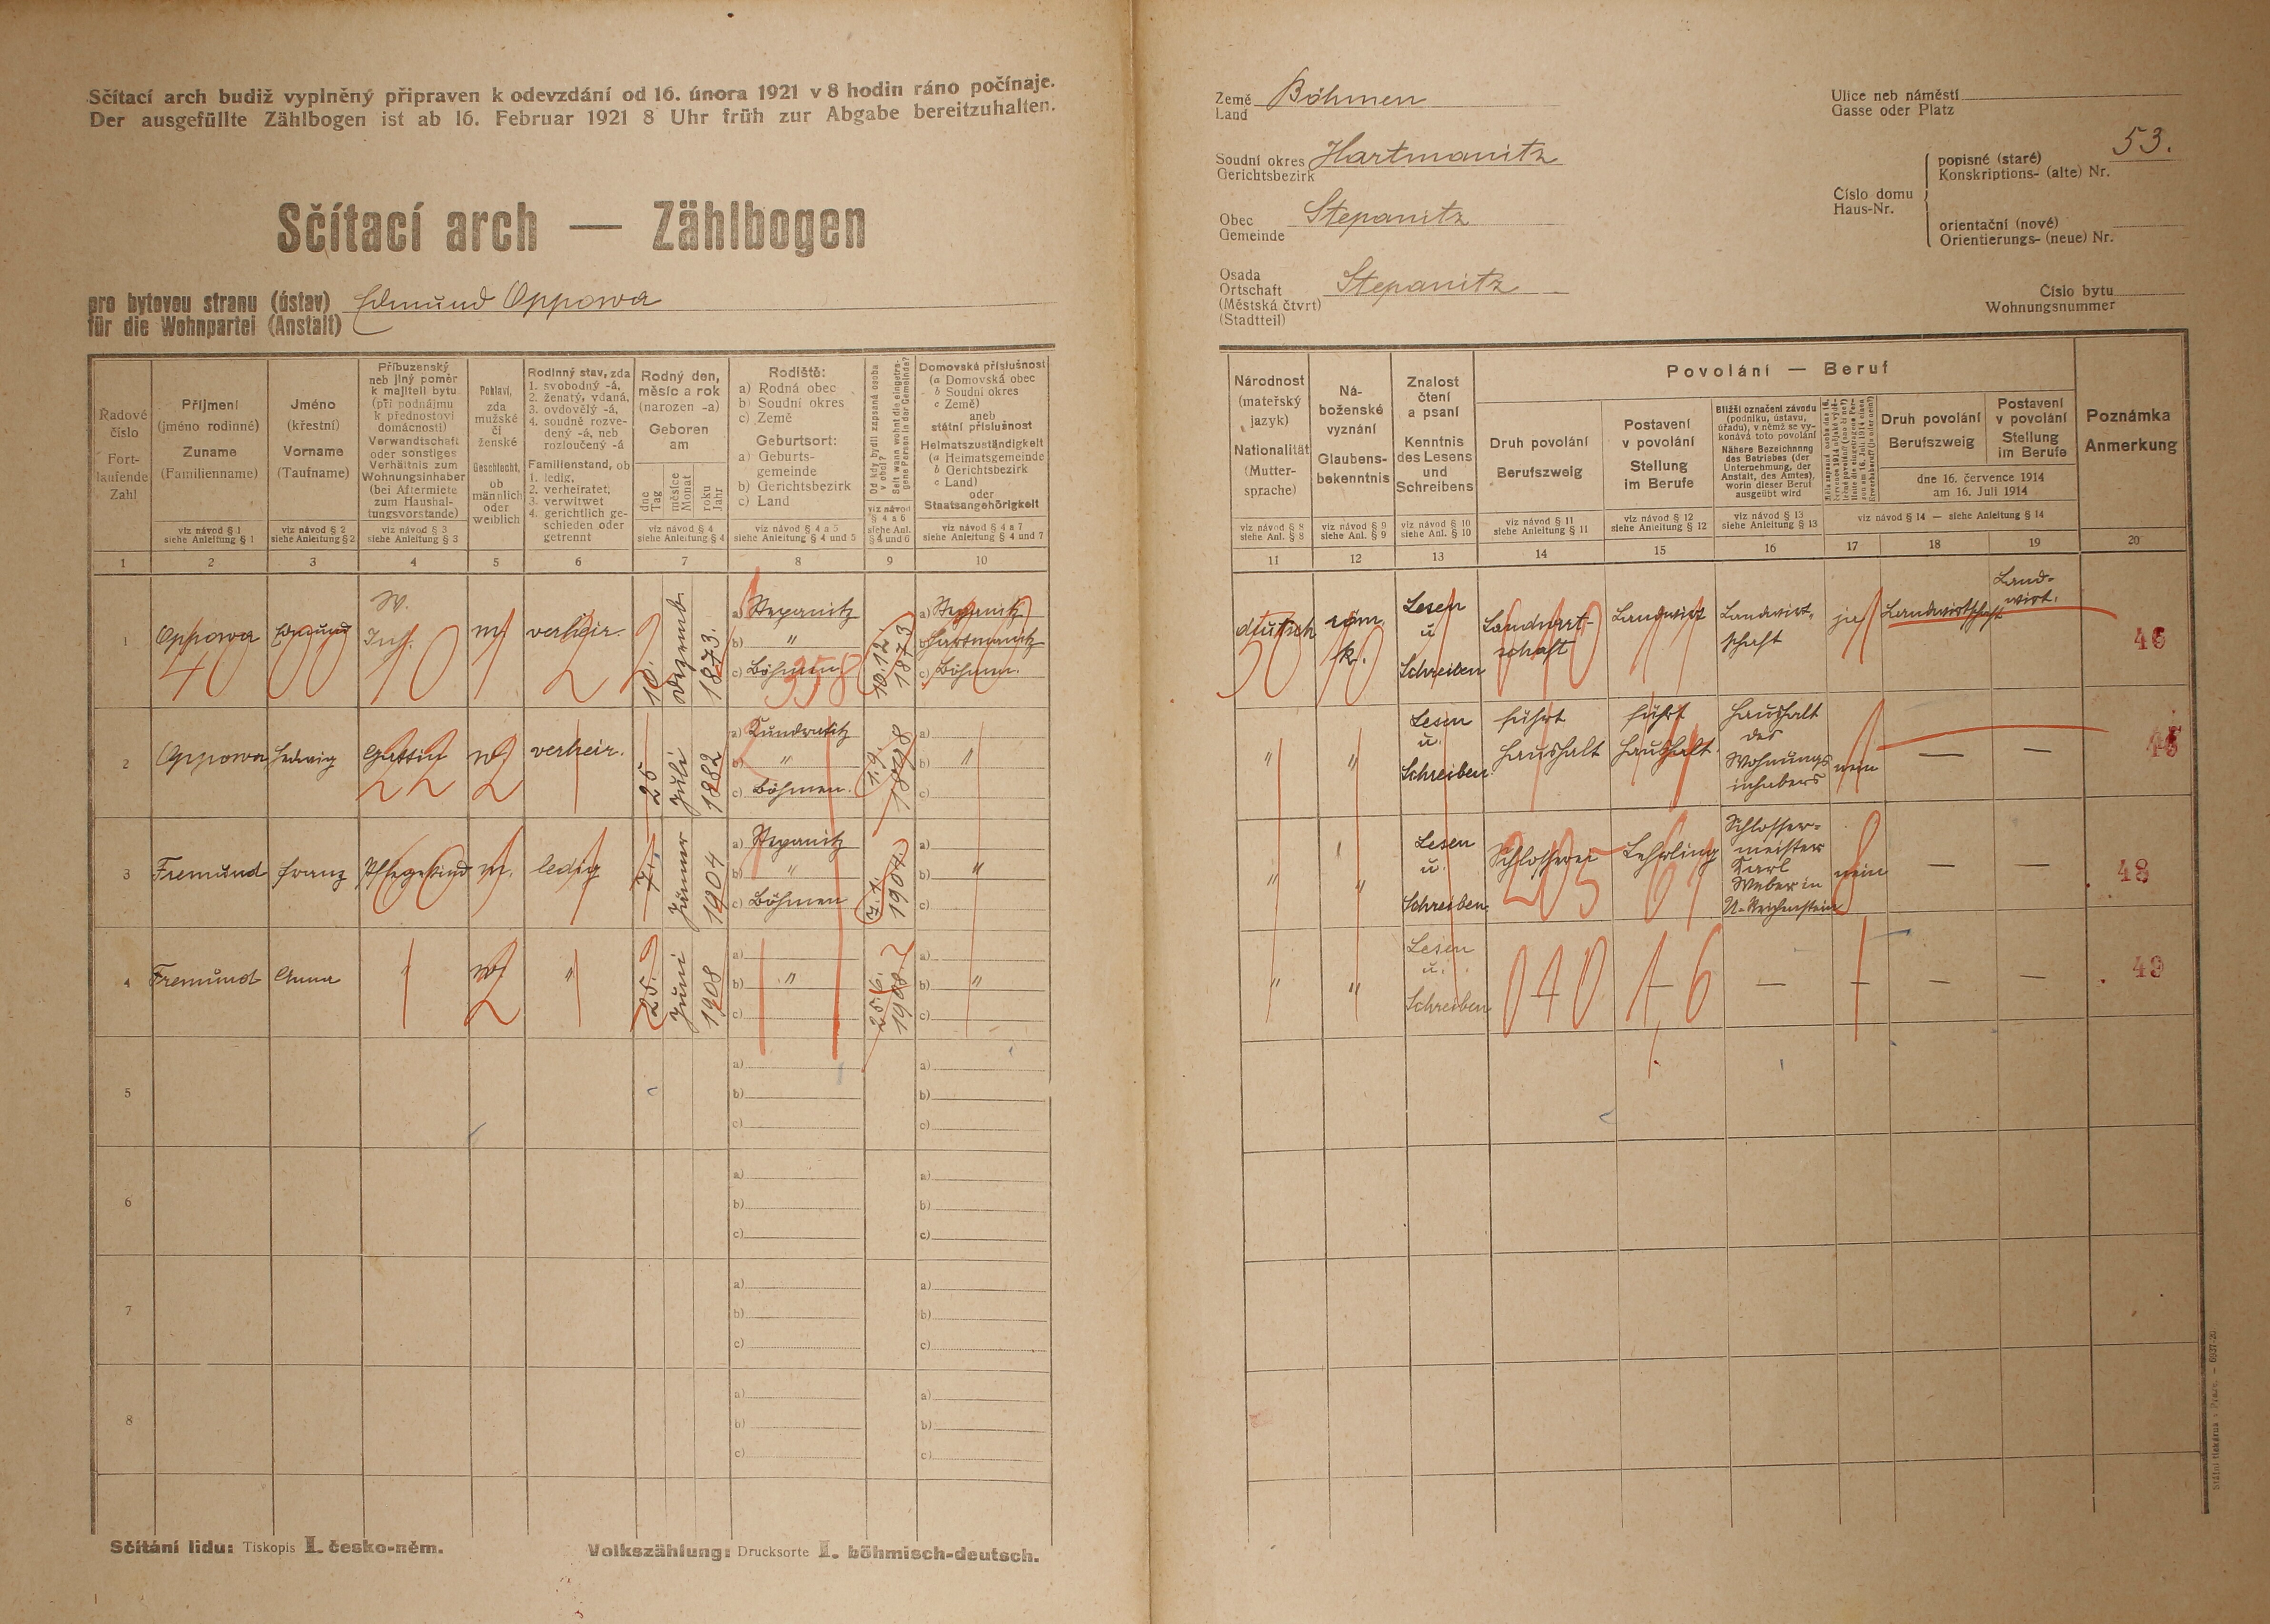 Sčítací arch budiž vyplněný připraven k odevzdání od 16. února 1921 v 8 hodin ráno počínaje.
Der ausgefüllte Zählbogen ist ab 16. Februar 1921 8 Uhr früh zur Abgabe bereitzuhalten.
Sčítací arch — Zählbogen
pro bytovou stranu (ústav)
für die Wohnpartei (Anstalt)
Edmund Oppowa
Řadové číslo
Fortlaufende Zahl
1
Příjmení
(jméno rodinné)
Zuname
(Familienname)
viz návod § 1
siehe Anleitung § 1
2
Jméno
(křestní)
Vorname
(Taufname)
viz návod § 2
siehe Anleitung § 2
3
Příbuzenský
neb jiný poměr
k majiteli bytu
(při podnájmu
k přednostovi
domácnosti)
Verwandtschaft
oder sonstiges
Verhältnis zum
Wohnungsinhaber
(bei Aftermiete
zum Haushal-
tungsvorstande)
viz návod § 3
siehe Anleitung § 3
4
Pohlaví,
zda
mužské
či
ženské
Geschlecht,
ob
männlich
oder
weiblich
5
Rodinný stav, zda
1. svobodný -á,
2. ženatý, vdaná,
3. ovdovělý -á,
4. soudně rozve-
dený -á, neb
rozloučený -á
Familienstand, ob
1. ledig,
2. verheiratet,
3. verwitwet
4. gerichtlich ge-
schieden oder
getrennt
6
Rodný den,
měsíc a rok
(narozen -a)
Geboren
am
dne
Tag
měsíce
Monat
roku
Jahr
viz návod § 4
siehe Anleitung § 4
7
Rodiště:
a) Rodná obec
b) Soudní okres
c) Země
Geburtsort:
a) Geburts-
gemeinde
b) Gerichtsbezirk
c) Land
viz návod § 4 a 5
siehe Anleitung § 4 und 5
8
Od kdy bydlí zapsaná osoba
v obci?
Seit wann wohnt die eingetra-
gene Person in der Gemeinde?
viz návod
§ 4 a 6
siehe Anl.
§ 4 und 6
9
Domovská příslušnost
(a Domovská obec
b Soudní okres
c Země)
aneb
státní příslušnost
Heimatszuständigkeit
(a Heimatsgemeinde
b Gerichtsbezirk
c Land)
oder
Staatsangehörigkeit
viz návod § 4 a 7
siehe Anleitung § 4 und 7
10
1 Oppowa Edmund W. Inh. m verheir. 10. Dezemb. 1873. a) Stepanitz b) " c) Böhmen 10.12. 1873 a) Stepanitz b) Hartmanitz c) Böhmen.
40 00 10 1 2 2 358
2 Oppowa Hedwig Gattin w verheir. 25 Juli 1882 a) Kundratitz b) " c) Böhmen. 1.9. 1898 a) b) " c)
22 2
3 Fremund Franz Pflegekind m. ledig 7. Jänner 1904 a) Stepanitz b) " c) Böhmen 7.1. 1904 a) b) " c)
60
4 Fremund Anna " w. " 25. Juni 1908 a) b) " c) 25.6. 1908 a) b) " c)
2
5 a) b) c) a) b) c)
6 a) b) c) a) b) c)
7 a) b) c) a) b) c)
8 a) b) c) a) b) c)
Sčítání lidu: Tiskopis I. česko-něm.
Volkszählung: Drucksorte I. böhmisch-deutsch.
Země
Land
Böhmen
Soudní okres
Gerichtsbezirk
Hartmanitz
Obec
Gemeinde
Stepanitz
Osada
Ortschaft
(Městská čtvrt)
(Stadtteil)
Stepanitz
Ulice neb náměstí
Gasse oder Platz
Číslo domu
Haus-Nr.
popisné (staré)
Konskriptions- (alte) Nr.
53.
orientační (nové)
Orientierungs- (neue) Nr.
Číslo bytu
Wohnungsnummer
Národnost
(mateřský
jazyk)
Nationalität
(Mutter-
sprache)
viz návod § 8
siehe Anl. § 8
11
Ná-
boženské
vyznání
Glaubens-
bekenntnis
viz návod § 9
siehe Anl. § 9
12
Znalost
čtení
a psaní
Kenntnis
des Lesens
und
Schreibens
viz návod § 10
siehe Anl. § 10
13
Povolání — Beruf
Druh povolání
Berufszweig
viz návod § 11
siehe Anleitung § 11
14
Postavení
v povolání
Stellung
im Berufe
viz návod § 12
siehe Anleitung § 12
15
Bližší označení závodu
(podniku, ústavu,
úřadu), v němž se vy-
konává toto povolání
Nähere Bezeichnung
des Betriebes (der
Unternehmung, der
Anstalt, des Amtes),
worin dieser Beruf
ausgeübt wird
viz návod § 13
siehe Anleitung § 13
16
17
Druh povolání
Berufszweig
18
Postavení
v povolání
Stellung
im Berufe
19
dne 16. července 1914
am 16. Juli 1914
viz návod § 14 — siehe Anleitung § 14
Poznámka
Anmerkung
20
deutsch röm. k. Lesen u Schreiben Landwirt-schaft Landwirt Landwirt-schaft ja Landwirtschaft Land-wirt. 46
50 10 1 010 11
" " Lesen u. Schreiben führt Haushalt führt Haushalt Haushalt des Wohnungsinhabers nein — —
" " Lesen u. Schreiben. Schlosserei Lehrling Schlosser-meister Karl Weber in U-Reichenstein nein — — 48
205 61
" " Lesen u. Schreiben — — — — 49